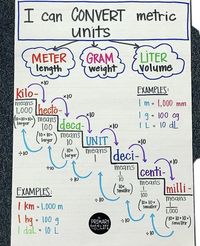 I can CONVERT metric
units
METER
length
GRAM
weight
LITER
volume
kilo-
means
1,000
(10×10×10)
larger
hecto-
means
100
(10×10)
larger
deca-
means
10
larger
UNIT
means
1
deci-
means
1/10
smaller
centi-
means
1/100
smaller
milli-
means
1/1,000
smaller
×10
×10
×10
×10
×10
×10
÷10
÷10
÷10
÷10
÷10
÷10
EXAMPLES:
1 m = 1,000 mm
1 g = 100 cg
1 L = 10 dL
EXAMPLES:
1 km = 1,000 m
1 hg = 100 g
1 daL = 10 L